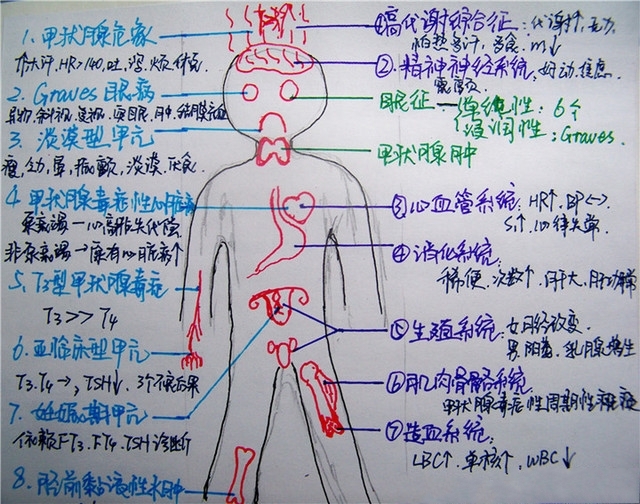 1. 甲状腺危象
个大汗. HR>140. 吐. 泻. 烦. 休克.
2. Graves 眼病
3. 淡漠型甲亢
瘦. 幼. 屏. 震颤. 淡漠. 厌食.
4 甲状腺毒症性心脏病
泵衰竭—心高排失代偿
非泵衰竭→原有心脏病个
5. T3型甲状腺毒症
T3>>T4
6. 亚临床型甲亢
T3. T4→, TSH↓. 3个不良后果
7. 妊娠期甲亢
依赖FT3. FT4. TSH诊断
8. 胫前黏液性水肿
①高代谢综合征: 代谢↑. 乏力.
怕热多汗. 多食. m↓
②. 精神神经系统: 好动. 焦虑.
震颤
眼征—单纯性: 6个
浸润性: Graves.
甲状腺肿
③心血管系统: HR↑. BP↔
S₁↑. 心律失常
④消化系统:
稀便. 次数↑. 肝大. 肝功异常
⑤生殖系统: 女月经改变.
男阳萎. 乳腺增生
⑥肌肉骨骼系统:
甲状腺毒症性周期性瘫痪
⑦造血系统:
LBC↑. 单核↑. WBC↓